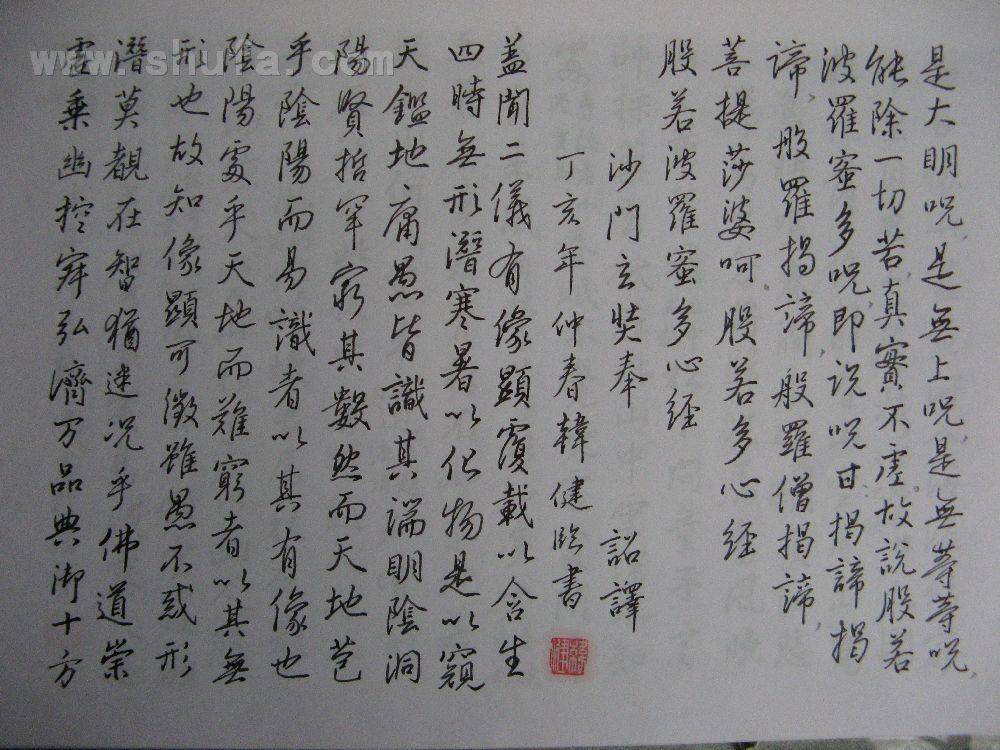 是大明呪,是無上呪,是無等等呪,
能除一切苦,真實不虛。故說般若
波羅蜜多呪,即说呪曰揭諦,揭
諦,般羅揭諦,般羅僧揭諦,
菩提莎婆呵。般若多心经
般若波羅蜜多心经
沙門玄奘奉 詔譯
丁亥年仲春韓健临書
盖聞二儀有像顯覆載以含生
四時無形潛寒暑以化物是以窺
天鑑地庸愚皆識其端明陰洞
陽賢哲罕窮其數然而天地苞
乎陰陽而易識者以其有像也
陰陽處乎天地而難窮者以其無
形也故知像顯可徵雖愚不惑形
潛莫覩在智猶迷况乎佛道崇
虛乘幽控寂弘濟万品典御十方
www.shufa.com